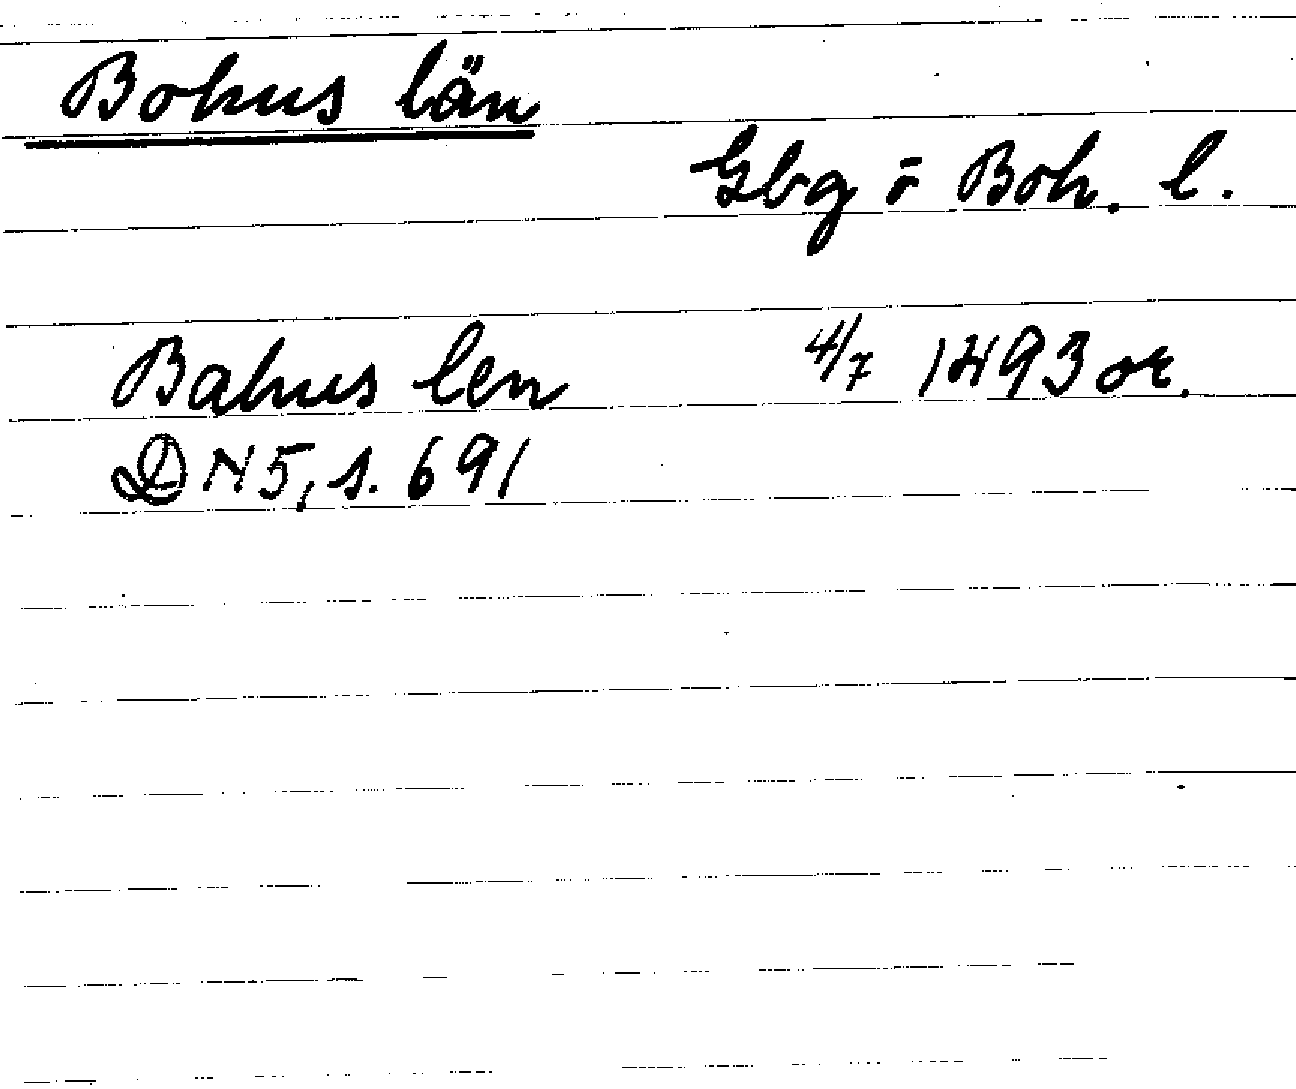 Bohus län
Gbg o Boh. l.
Bahus len 4/7 1493 or.
DN 5, s. 691